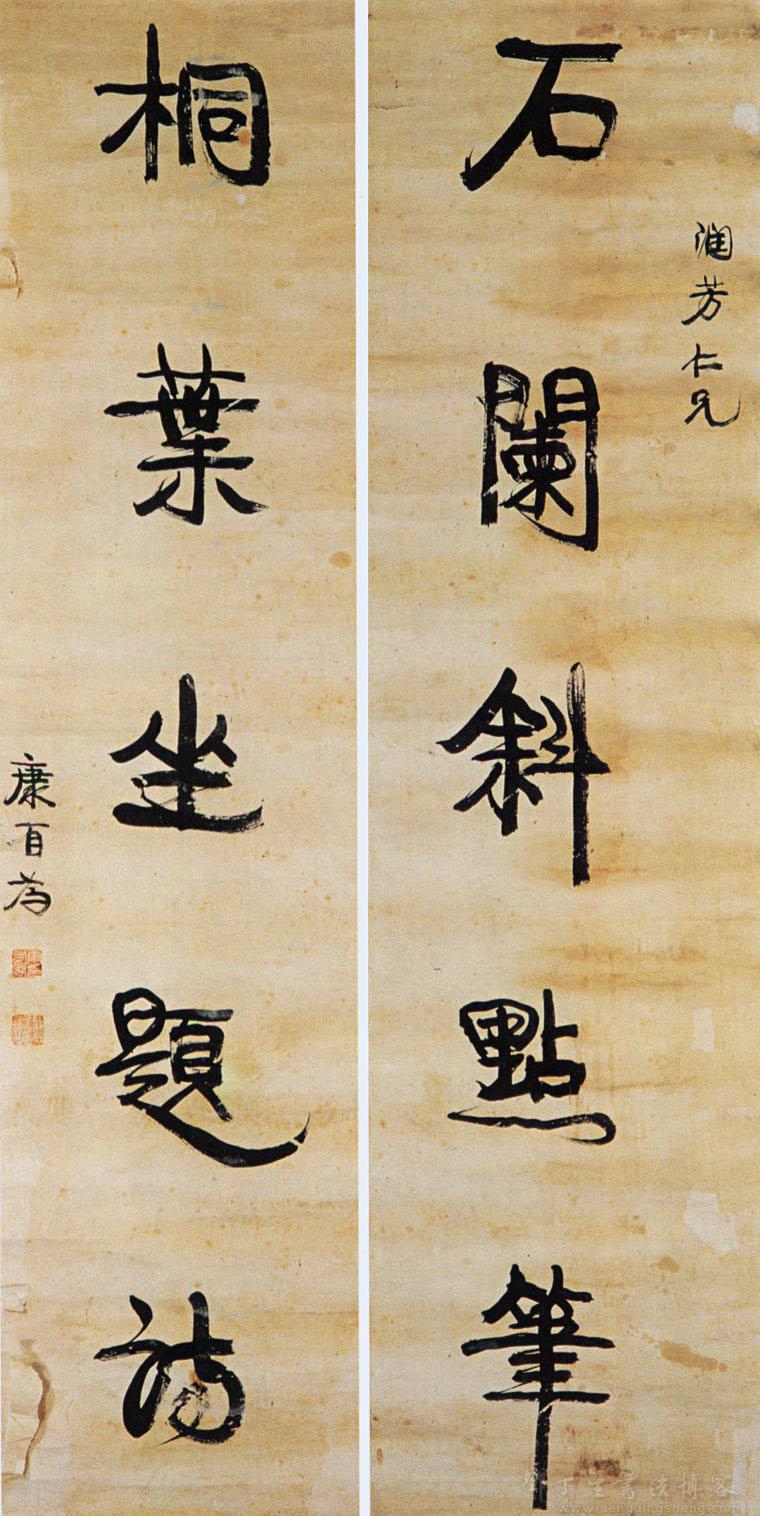 石闌斜點筆
潤芳仁兄
桐葉坐題詩
康有為
www.dengdingsheng.com